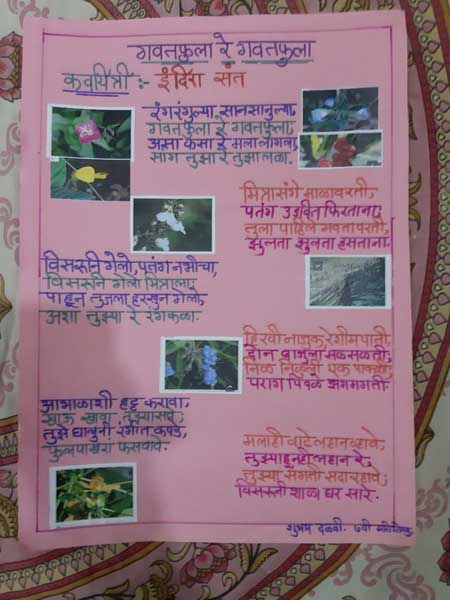 गवतफुला रे गवतफुला
कवयित्री :- इंदिरा संत
रंगरंगुल्या सानसानुल्या,
गवतफुला रे गवतफुला,
असा कसा रे मला लागला,
सांग तुझा रे तुझा लळा.
मित्रासंगे माळावरती,
पतंग उडवित फिरताना,
तुला पाहिले गवतावरती,
झुलता झुलता हसताना.
विसरुनि गेलो, पतंग नभीचा,
विसरुनि गेलो मित्राला,
पाहुन तुजला हरखुन गेलो,
अशा तुझ्या रे रंगकळा.
हिरवी नाजुक, रेशीम पाती,
दोन बाजुला सळसळती,
निळ निळुली एक पाकळी,
पराग पिवळे झगमगती
आभाळाशी हट्ट करावा,
खाऊ खावा तुझ्यासवे,
तुझे घालुनी रंगीत कपडे,
फुलपाखरा फसवावे.
मलाही वाटे लहान व्हावे,
तुझ्याहुनही लहान रे,
तुझ्या संगती सदा रहावे,
विसरुनी शाळा घर सारे.
शुभम दळवी. ७वी